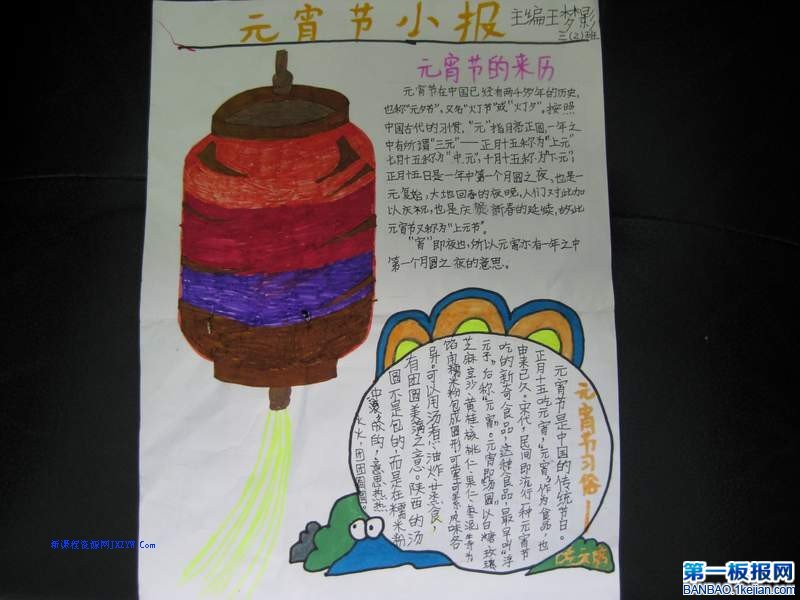 元宵节小报
主编王梦影
三(2)班
元宵节的来历
元宵节在中国已经有两千多年的历史,
也称"元夕节",又名"灯节"或"灯夕"。按照
中国古代的习惯,"元"指月亮正圆,一年之
中有所谓"三元"——正月十五称为"上元"
七月十五称为"中元",十月十五称为"下元";
正月十五日是一年中第一个月圆之夜,也是一
元复始,大地回春的夜晚,人们对此加
以庆祝,也是庆贺新春的延续,故此
元宵节又称为"上元节"。
"宵"即夜也,所以元宵亦有一年之中
第一个月圆之夜的意思。
元宵节习俗——
吃元宵
元宵节是中国的传统节日。
正月十五吃元宵,"元宵"作为食品,也
由来已久。宋代,民间即流行一种元宵节
吃的新奇食品,这种食品,最早叫"浮
元子"后称"元宵"。元宵即"汤圆"以白糖、玫瑰、
芝麻、豆沙、黄桂、核桃仁、果仁、枣泥等为
馅,用糯米粉包成圆形,可荤可素,风味各
异。可以用汤煮、油炸、蒸食,
有团圆美满之意。陕西的汤
圆不是包的,而是在糯米粉
中滚成的,意思热热
火火,团团圆圆。
新课程资源网JXZYW.Com
第一板报网
BANBAO.1kejian.com